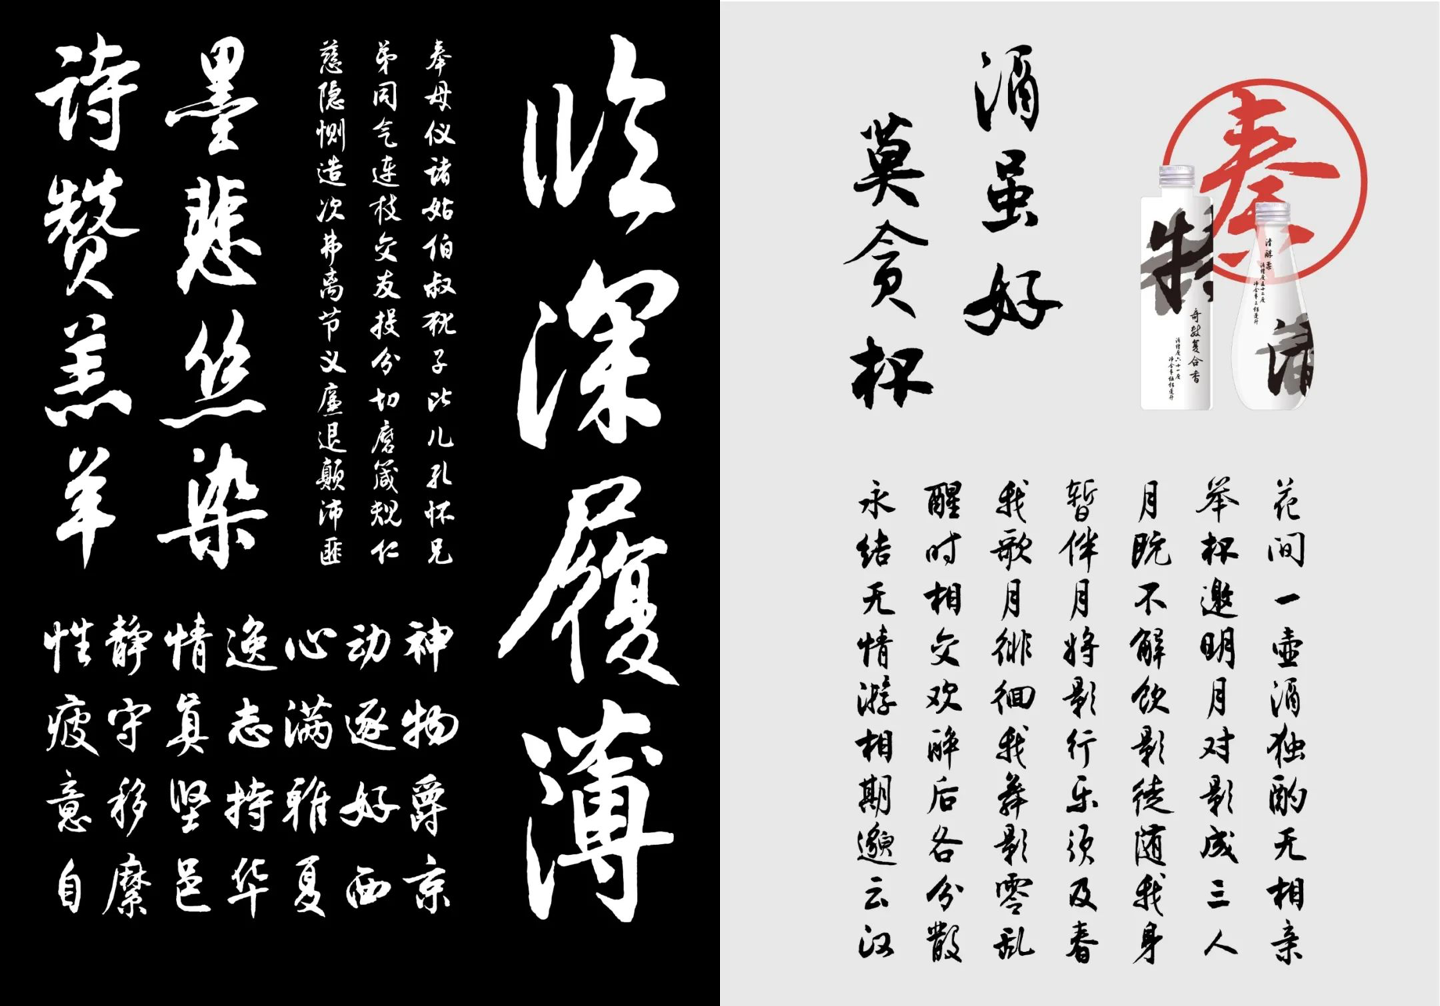 临深履薄
奉母仪诸姑伯叔犹子比儿孔怀兄
弟同气连枝交友投分切磨箴规仁
慈隐恻造次弗离节义廉退颠沛匪
墨悲丝染
诗赞羔羊
神物爵京
动逐好西
心满雅夏
逸志持华
情真坚邑
静守移縻
性疲意自
酒虽好
莫贪杯
秦
特
奇数复合香
清
花间一壶酒独酌无相亲
举杯邀明月对影成三人
月既不解饮影徒随我身
暂伴月将影行乐须及春
我歌月徘徊我舞影零乱
醒时相交欢醉后各分散
永结无情游相期邈云汉